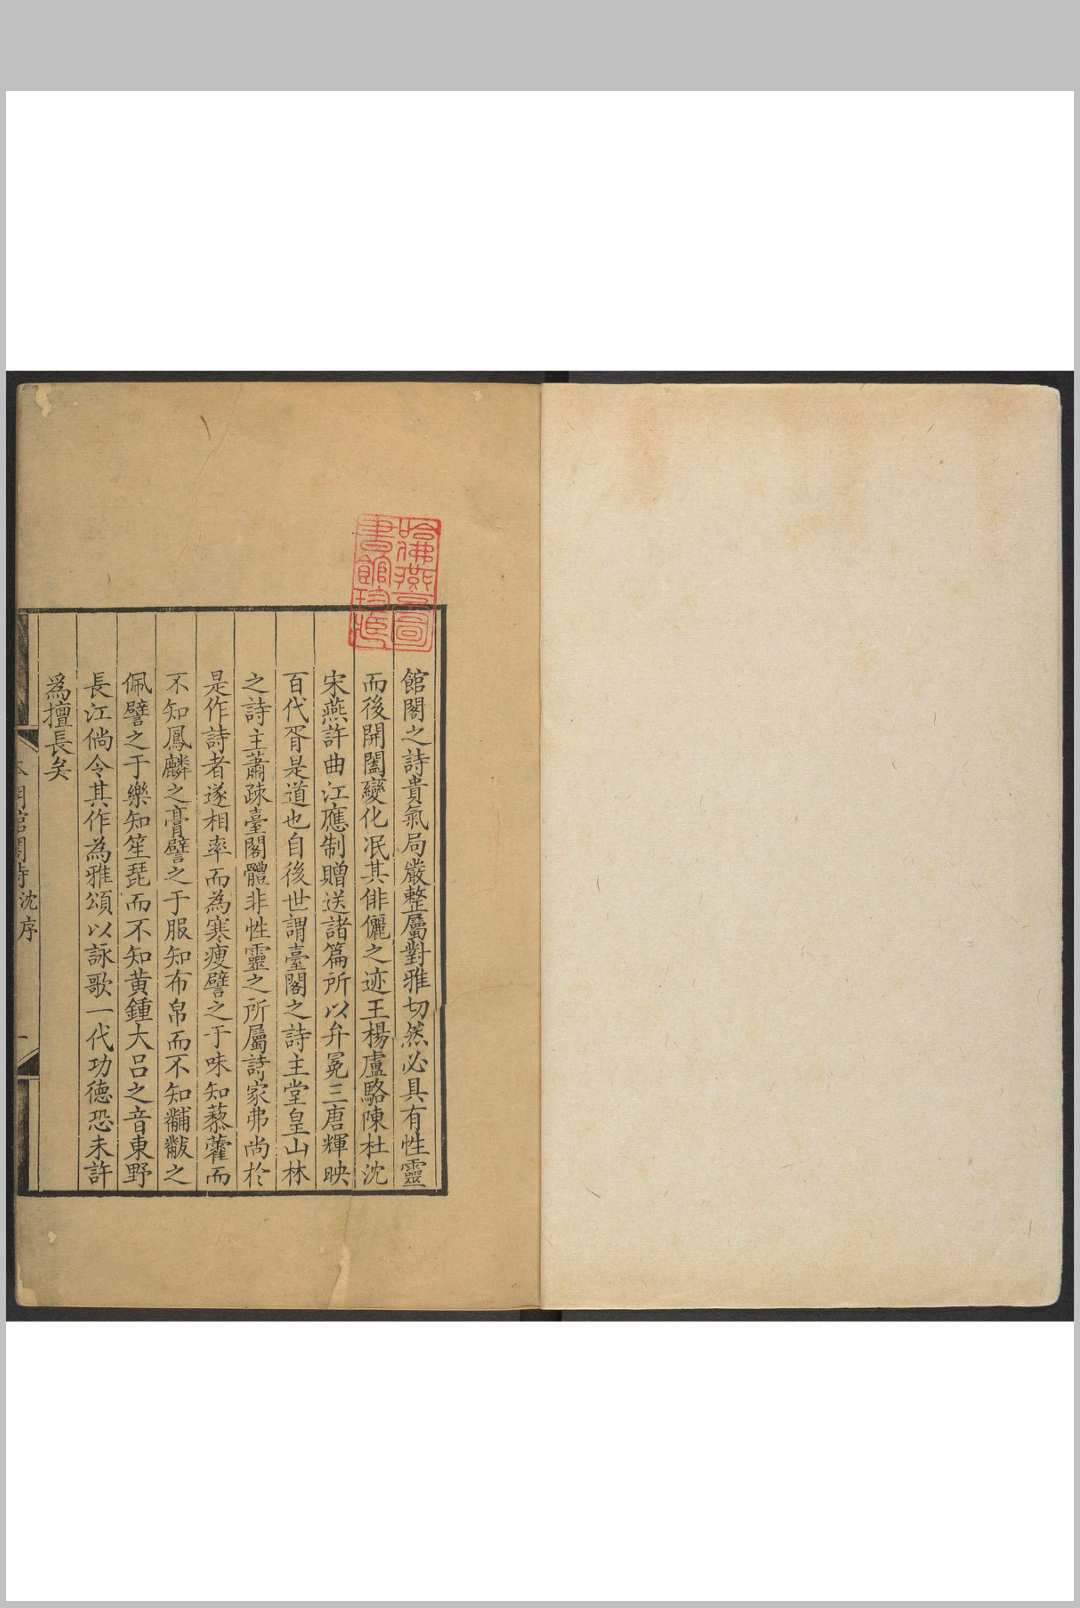 哈佛燕京圖
書館珍藏
館閣之詩貴氣局嚴整屬對雅切然必具有性靈
而後開闔變化泯其俳儷之迹王楊盧駱陳杜沈
宋燕許曲江應制贈送諸篇所以弁冕三唐輝映
百代胥是道也自後世謂臺閣之詩主堂皇山林
之詩主蕭疎臺閣體非性靈之所屬詩家弗尚於
是作詩者遂相率而為寒瘦譬之于味知藜藿而
不知鳳麟之膏譬之于服知布帛而不知黼黻之
佩譬之于樂知笙琵而不知黄鍾大吕之音東野
長江倘令其作為雅頌以詠歌一代功德恐未許
為擅長矣
本朝館閣詩 沈序 一